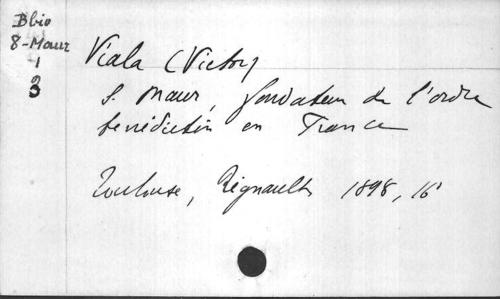 Bbio
8-Maur
1
3
Viala (Victor)
S. Maur, fondateur de l'ordre
bénédictin en France
Toulouse, Régnault, 1898, 16°